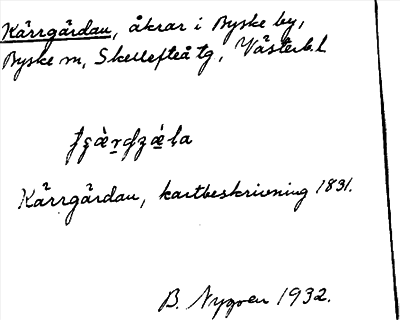 Kärrgärdan, åkrar i Byske by,
Byske sn, Skellefteå tg, Västerb. l
Kärrgärdan, kartbeskrivning 1891.
B. Nygren 1932.